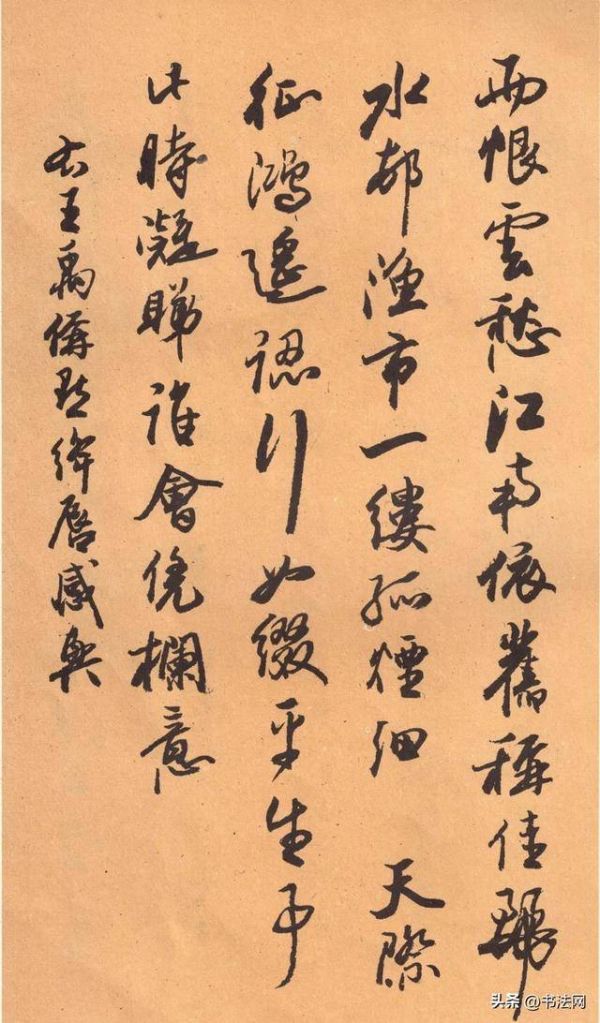 雨恨雲愁江南依舊稱佳麗
水邨漁市一縷孤煙細 天際
征鴻遙認行如綴平生事
此時凝睇誰會凭欄意
右王禹偁点絳唇感興
头条 @书法网